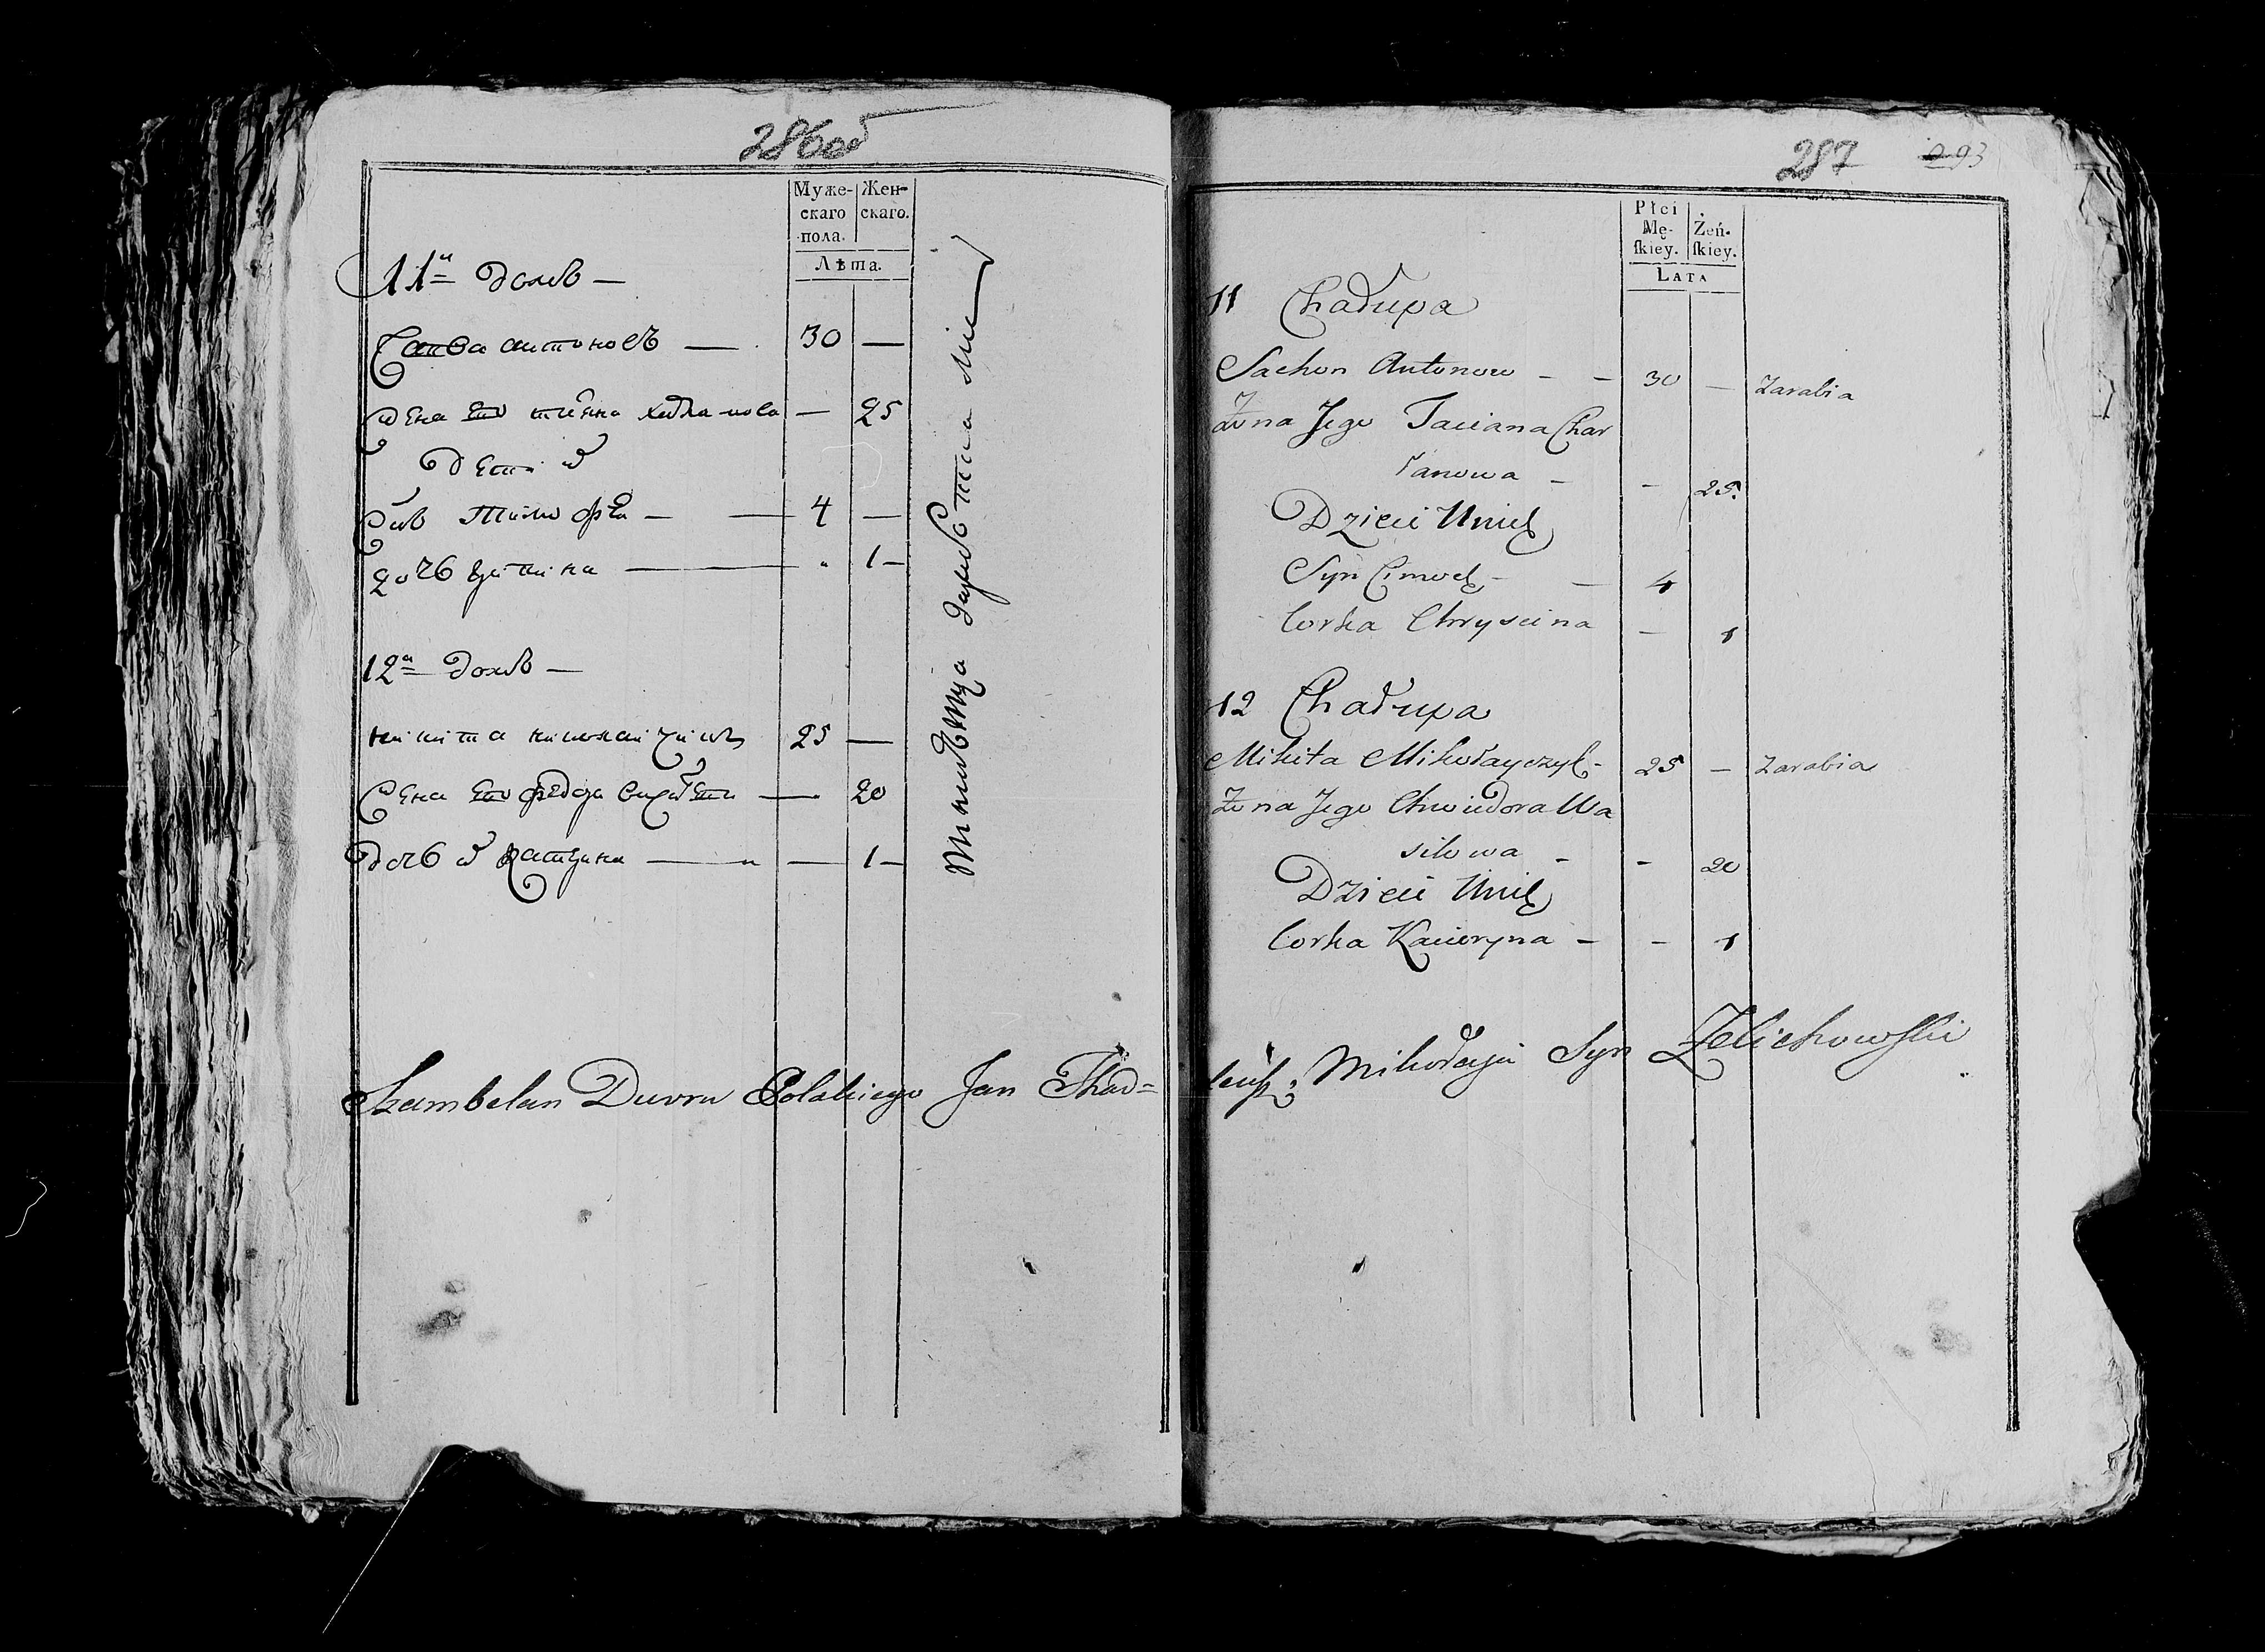 286об
Муже-
скаго
пола.
Жен-
скаго.
Лѣта.
11й домъ —
антоновъ — 30 —
жена его — 25
дети
сынъ Тимофей — 4 —
дочь — 1 —
12й домъ —
никита николайчикъ 25 —
жена его федора — 20
дочь катерина — 1 —
Szambelan Dworu Polskiego Jan Thad=
287 293
Płci
Mę-
ſkiey.
Żeń-
ſkiey.
LATA
11 Chałupa
Sachon Antonow - - 30 — Zarabia
Żona Jego Taciana Char
łanowa - - 25.
Dzieci Unich
Syn Cimoch - - 4
Corka Chryscina - 1
12 Chałupa
Mikita Mikołayczyk - 25 — Zarabia
Żona Jego Chwiedora Wa
silowa - - 20
Dzieci Unich
Corka Kacieryna - - 1
Mikołaja Syn Zelichowſki